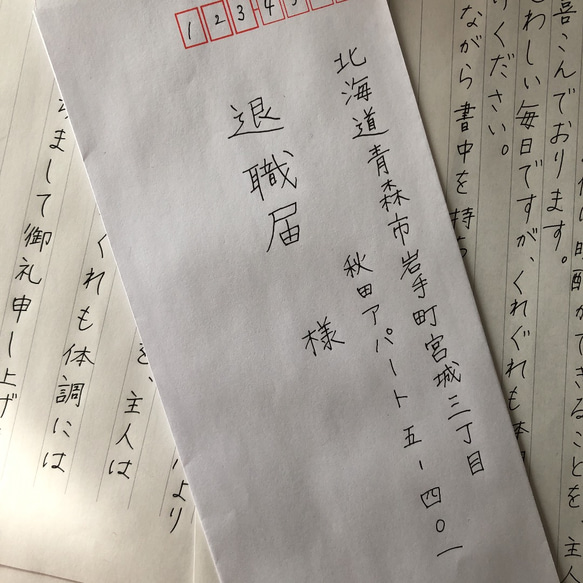 1234
北海道青森市岩手町宮城三丁目
秋田アパート五-四〇一
退職届
様
喜こんでおります。
わしい毎日ですが、くれぐれも
ください。
ながら書中を持ち
できることを、主人
より
を、主人は
くれも体調には
まして御礼申し上げ